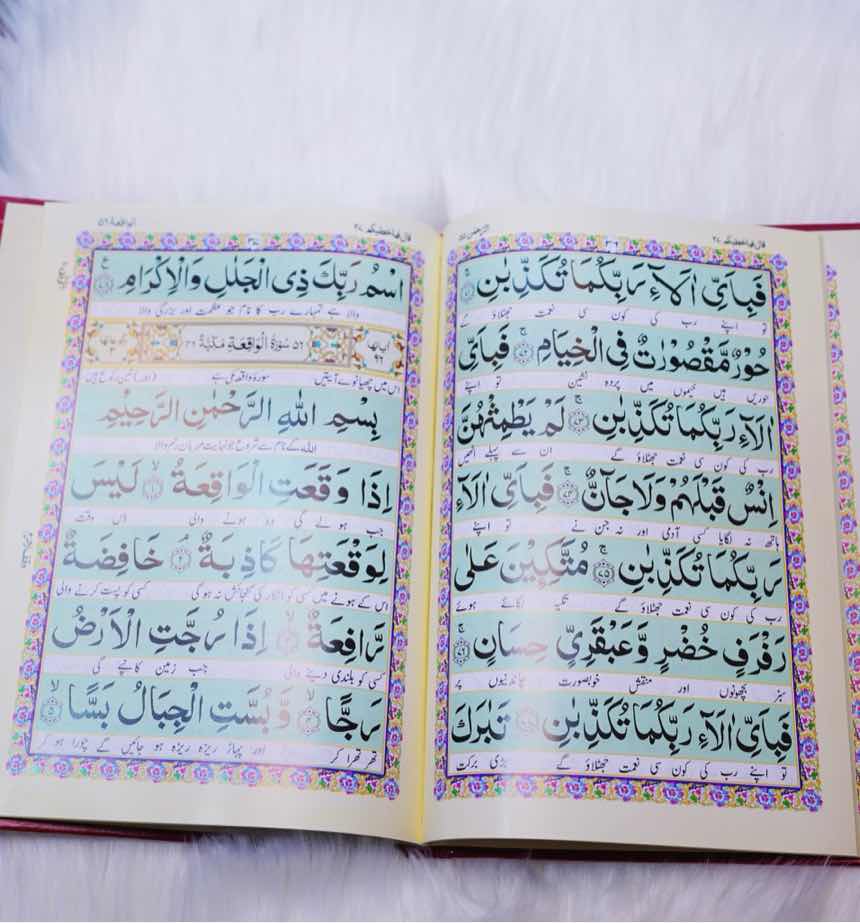 قال فما خطبكم ۲۷
فَبِاَيِّ اٰلَآءِ رَبِّكُمَا تُكَذِّبٰنِ
تو اپنے رب کی کون سی نعمت جھٹلاؤ گے
حُوْرٌ مَّقْصُوْرٰتٌ فِي الْخِيَامِ ۝۷۲ فَبِاَيِّ
حوریں ہیں خیموں میں پردہ نشین تو اپنے
اٰلَآءِ رَبِّكُمَا تُكَذِّبٰنِ ۝۷۳ لَمْ يَطْمِثْهُنَّ
رب کی کون سی نعمت جھٹلاؤ گے ان سے پہلے انھیں
اِنْسٌ قَبْلَهُمْ وَلَا جَآنٌّ ۝۷۴ فَبِاَيِّ اٰلَآءِ
ہاتھ نہ لگایا کسی آدمی اور نہ جن نے تو اپنے
رَبِّكُمَا تُكَذِّبٰنِ ۝۷۵ مُتَّكِـِٕيْنَ عَلٰى
رب کی کون سی نعمت جھٹلاؤ گے تکیہ لگائے ہوئے
رَفْرَفٍ خُضْرٍ وَّعَبْقَرِيٍّ حِسَانٍ ۝۷۶
سبز بچھونوں اور منقش خوبصورت چاندنیوں پر
فَبِاَيِّ اٰلَآءِ رَبِّكُمَا تُكَذِّبٰنِ تَبٰرَكَ
تو اپنے رب کی کون سی نعمت جھٹلاؤ گے بڑی برکت
الواقعة ۵۶
قال فما خطبكم ۲۷
اسْمُ رَبِّكَ ذِي الْجَلٰلِ وَالْاِكْرَامِ
والا ہے تمہارے رب کا نام جو عظمت اور بزرگی والا
اٰیاتها ۹۶
۵۶ سُوْرَةُ الْوَاقِعَةِ مَكِّيَّةٌ ۴۶
اس میں چھیانوے آیتیں سورۂ واقعہ مکی ہے (اور) تین رکوع ہیں
بِسْمِ اللّٰهِ الرَّحْمٰنِ الرَّحِيْمِ
اللہ کے نام سے شروع جو نہایت مہربان رحم والا
اِذَا وَقَعَتِ الْوَاقِعَةُ ۝۱ لَيْسَ
جب ہو لے گی وہ ہونے والی اس وقت
لِوَقْعَتِهَا كَاذِبَةٌ ۝۲ خَافِضَةٌ
اس کے ہونے میں کسی کو انکار کی گنجائش نہ ہوگی کسی کو پست کرنے والی
رَّافِعَةٌ ۝۳ اِذَا رُجَّتِ الْاَرْضُ
کسی کو بلندی دینے والی جب زمین کانپے گی
رَجًّا ۝۴ وَّبُسَّتِ الْجِبَالُ بَسًّا ۝۵
تھر تھرا کر اور پہاڑ ریزہ ریزہ ہو جائیں گے چورا ہو کر